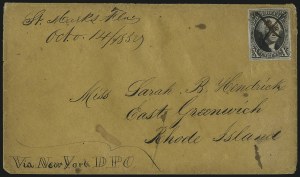 St. Marks Flor.
Octo. 14/1850
X X
Miss Sarah B. Kendrick
East Greenwich
Rhode Island
Via New York D P O